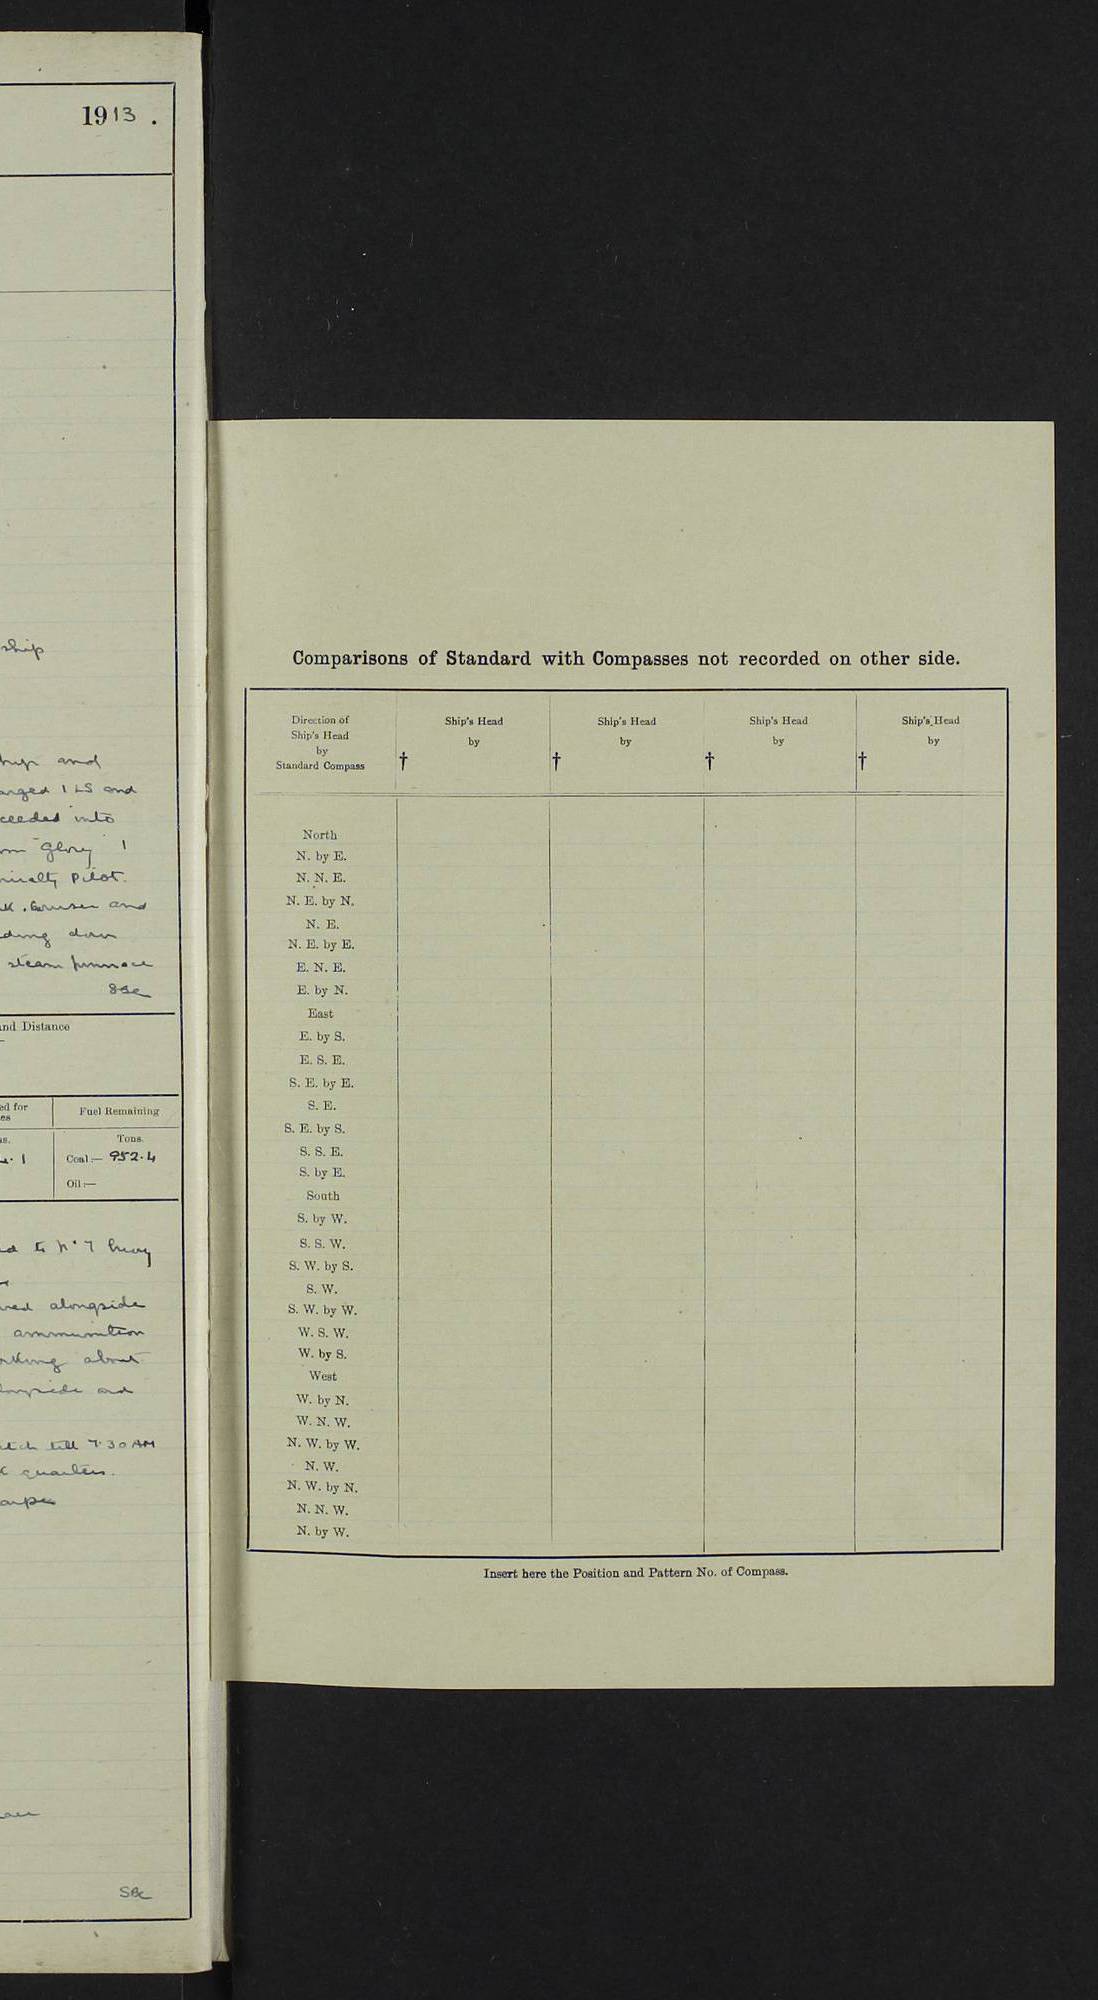 1913.
ship
and
1 LS and
into
"Glory" 1
Pilot.
and
down
steam pinnace
and Distance
Fuel Remaining
Tons.
Coal:— 952.4
Oil:—
to No 7 buoy
alongside
ammunition
about
and
till 7.30 AM
quarters.
SBC
Comparisons of Standard with Compasses not recorded on other side.
Direction of Ship's Head by Standard Compass
† Ship's Head by
† Ship's Head by
† Ship's Head by
† Ship's Head by
North
N. by E.
N. N. E.
N. E. by N.
N. E.
N. E. by E.
E. N. E.
E. by N.
East
E. by S.
E. S. E.
S. E. by E.
S. E.
S. E. by S.
S. S. E.
S. by E.
South
S. by W.
S. S. W.
S. W. by S.
S. W.
S. W. by W.
W. S. W.
W. by S.
West
W. by N.
W. N. W.
N. W. by W.
N. W.
N. W. by N.
N. N. W.
N. by W.
Insert here the Position and Pattern No. of Compass.